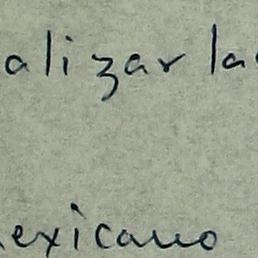 alizar la
exicano